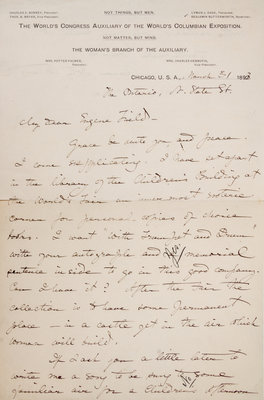 NOT THINGS, BUT MEN.
CHARLES C. BONNEY, President.
THOS. B. BRYAN, Vice President.
LYMAN J. GAGE, Treasurer.
BENJAMIN BUTTERWORTH, Secretary.
THE WORLD'S CONGRESS AUXILIARY OF THE WORLD'S COLUMBIAN EXPOSITION.
NOT MATTER, BUT MIND.
THE WOMAN'S BRANCH OF THE AUXILIARY.
MRS. POTTER PALMER, President.
MRS. CHARLES HENROTIN, Vice President.
CHICAGO, U. S. A., March 21 1893
The Ontario, N. State St.
My dear Eugene Field—
Grace be unto you and peace.
I come supplicating. I have set apart
in the library of the Children's Building at
the World's Fair an innermost esoteric
corner for personal copies of choice
books. I want "With Trumpet and Drum"
with your autograph and memorial
sentence inside to go in this good company.
Can I have it? After the Fair the
collection is to have some permanent
place — in a castle yet in the air which
women will build.
If I ask you a little later to
write me a song to be sung to some
familiar air for a Children's Afternoon